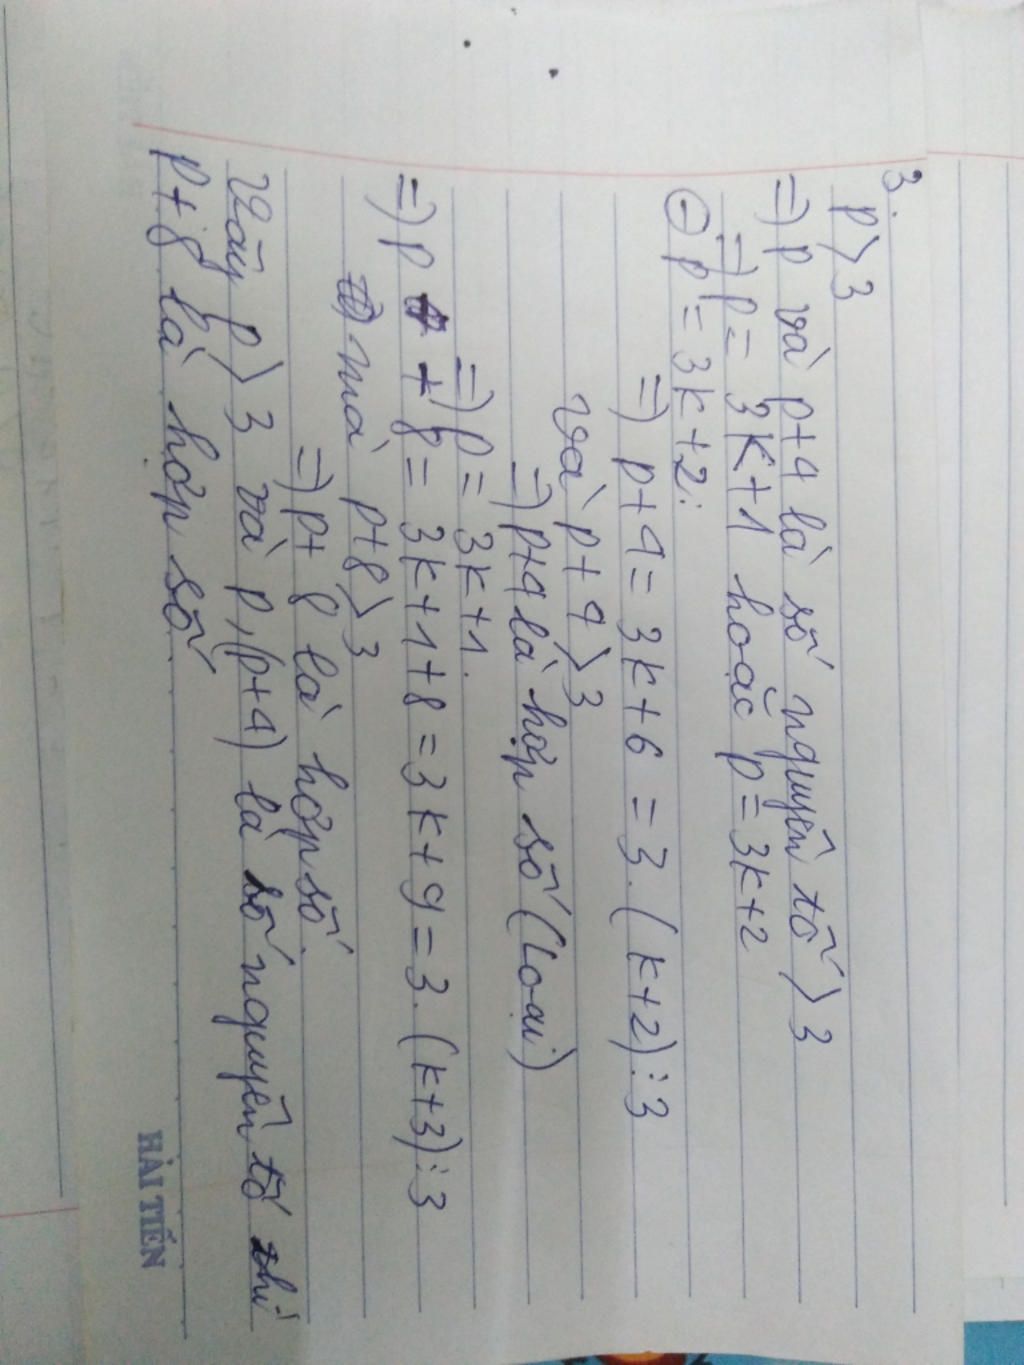 3.
p > 3
=) p và p+4 là số nguyên tố > 3
=) p = 3k+1 hoặc p = 3k+2
⊖ p = 3k+2:
=) p+4 = 3k+6 = 3.(k+2)⋮3
và p+4 > 3
=) p+4 là hợp số (loại)
=) p = 3k+1.
=) p + 8 = 3k+1+8 = 3k+9 = 3.(k+3)⋮3
mà p+8 > 3
=) p+8 là hợp số.
Vậy p > 3 và p,(p+4) là số nguyên tố thì
p+8 là hợp số
HẢI TIẾN